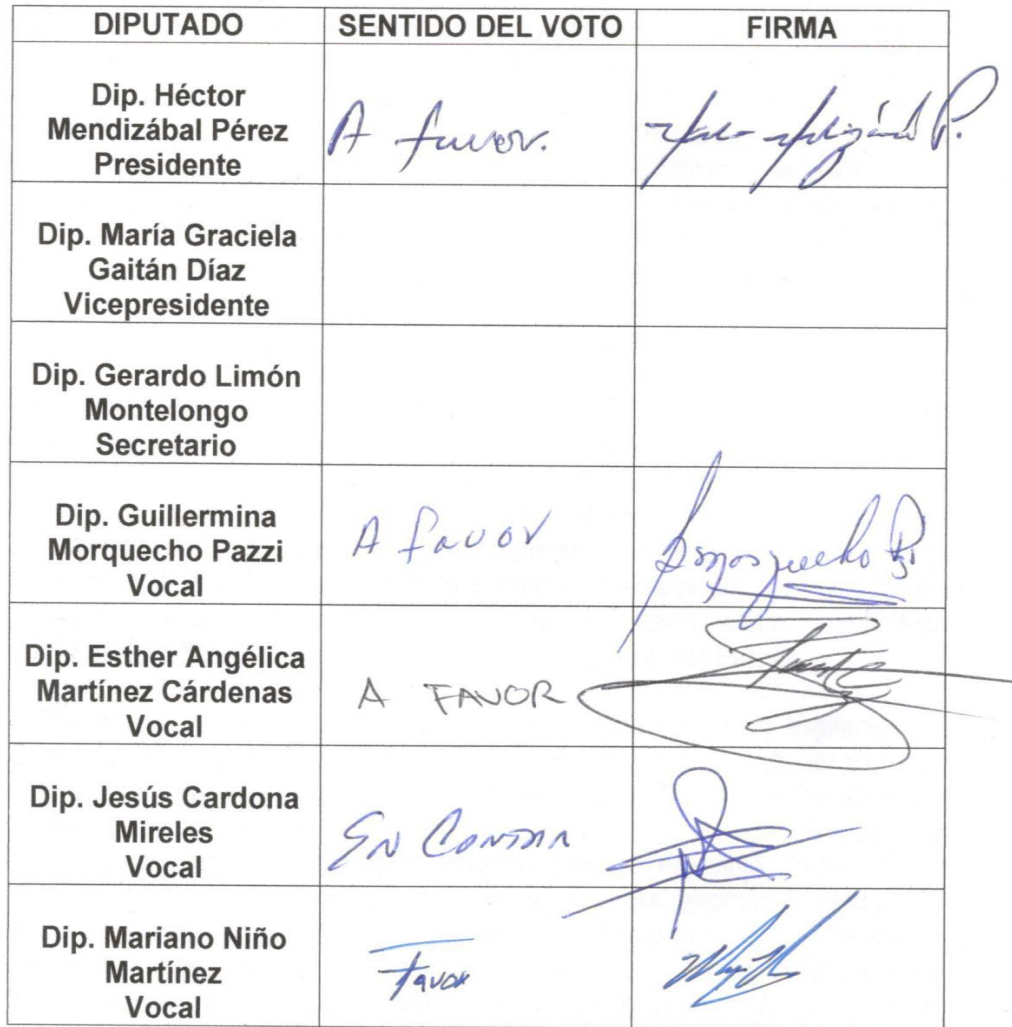 DIPUTADO SENTIDO DEL VOTO FIRMA
Dip. Héctor
Mendizábal Pérez
Presidente
A favor.
Dip. María Graciela
Gaitán Díaz
Vicepresidente
Dip. Gerardo Limón
Montelongo
Secretario
Dip. Guillermina
Morquecho Pazzi
Vocal
A favor
Dip. Esther Angélica
Martínez Cárdenas
Vocal
A FAVOR
Dip. Jesús Cardona
Mireles
Vocal
En Contra
Dip. Mariano Niño
Martínez
Vocal
Favor